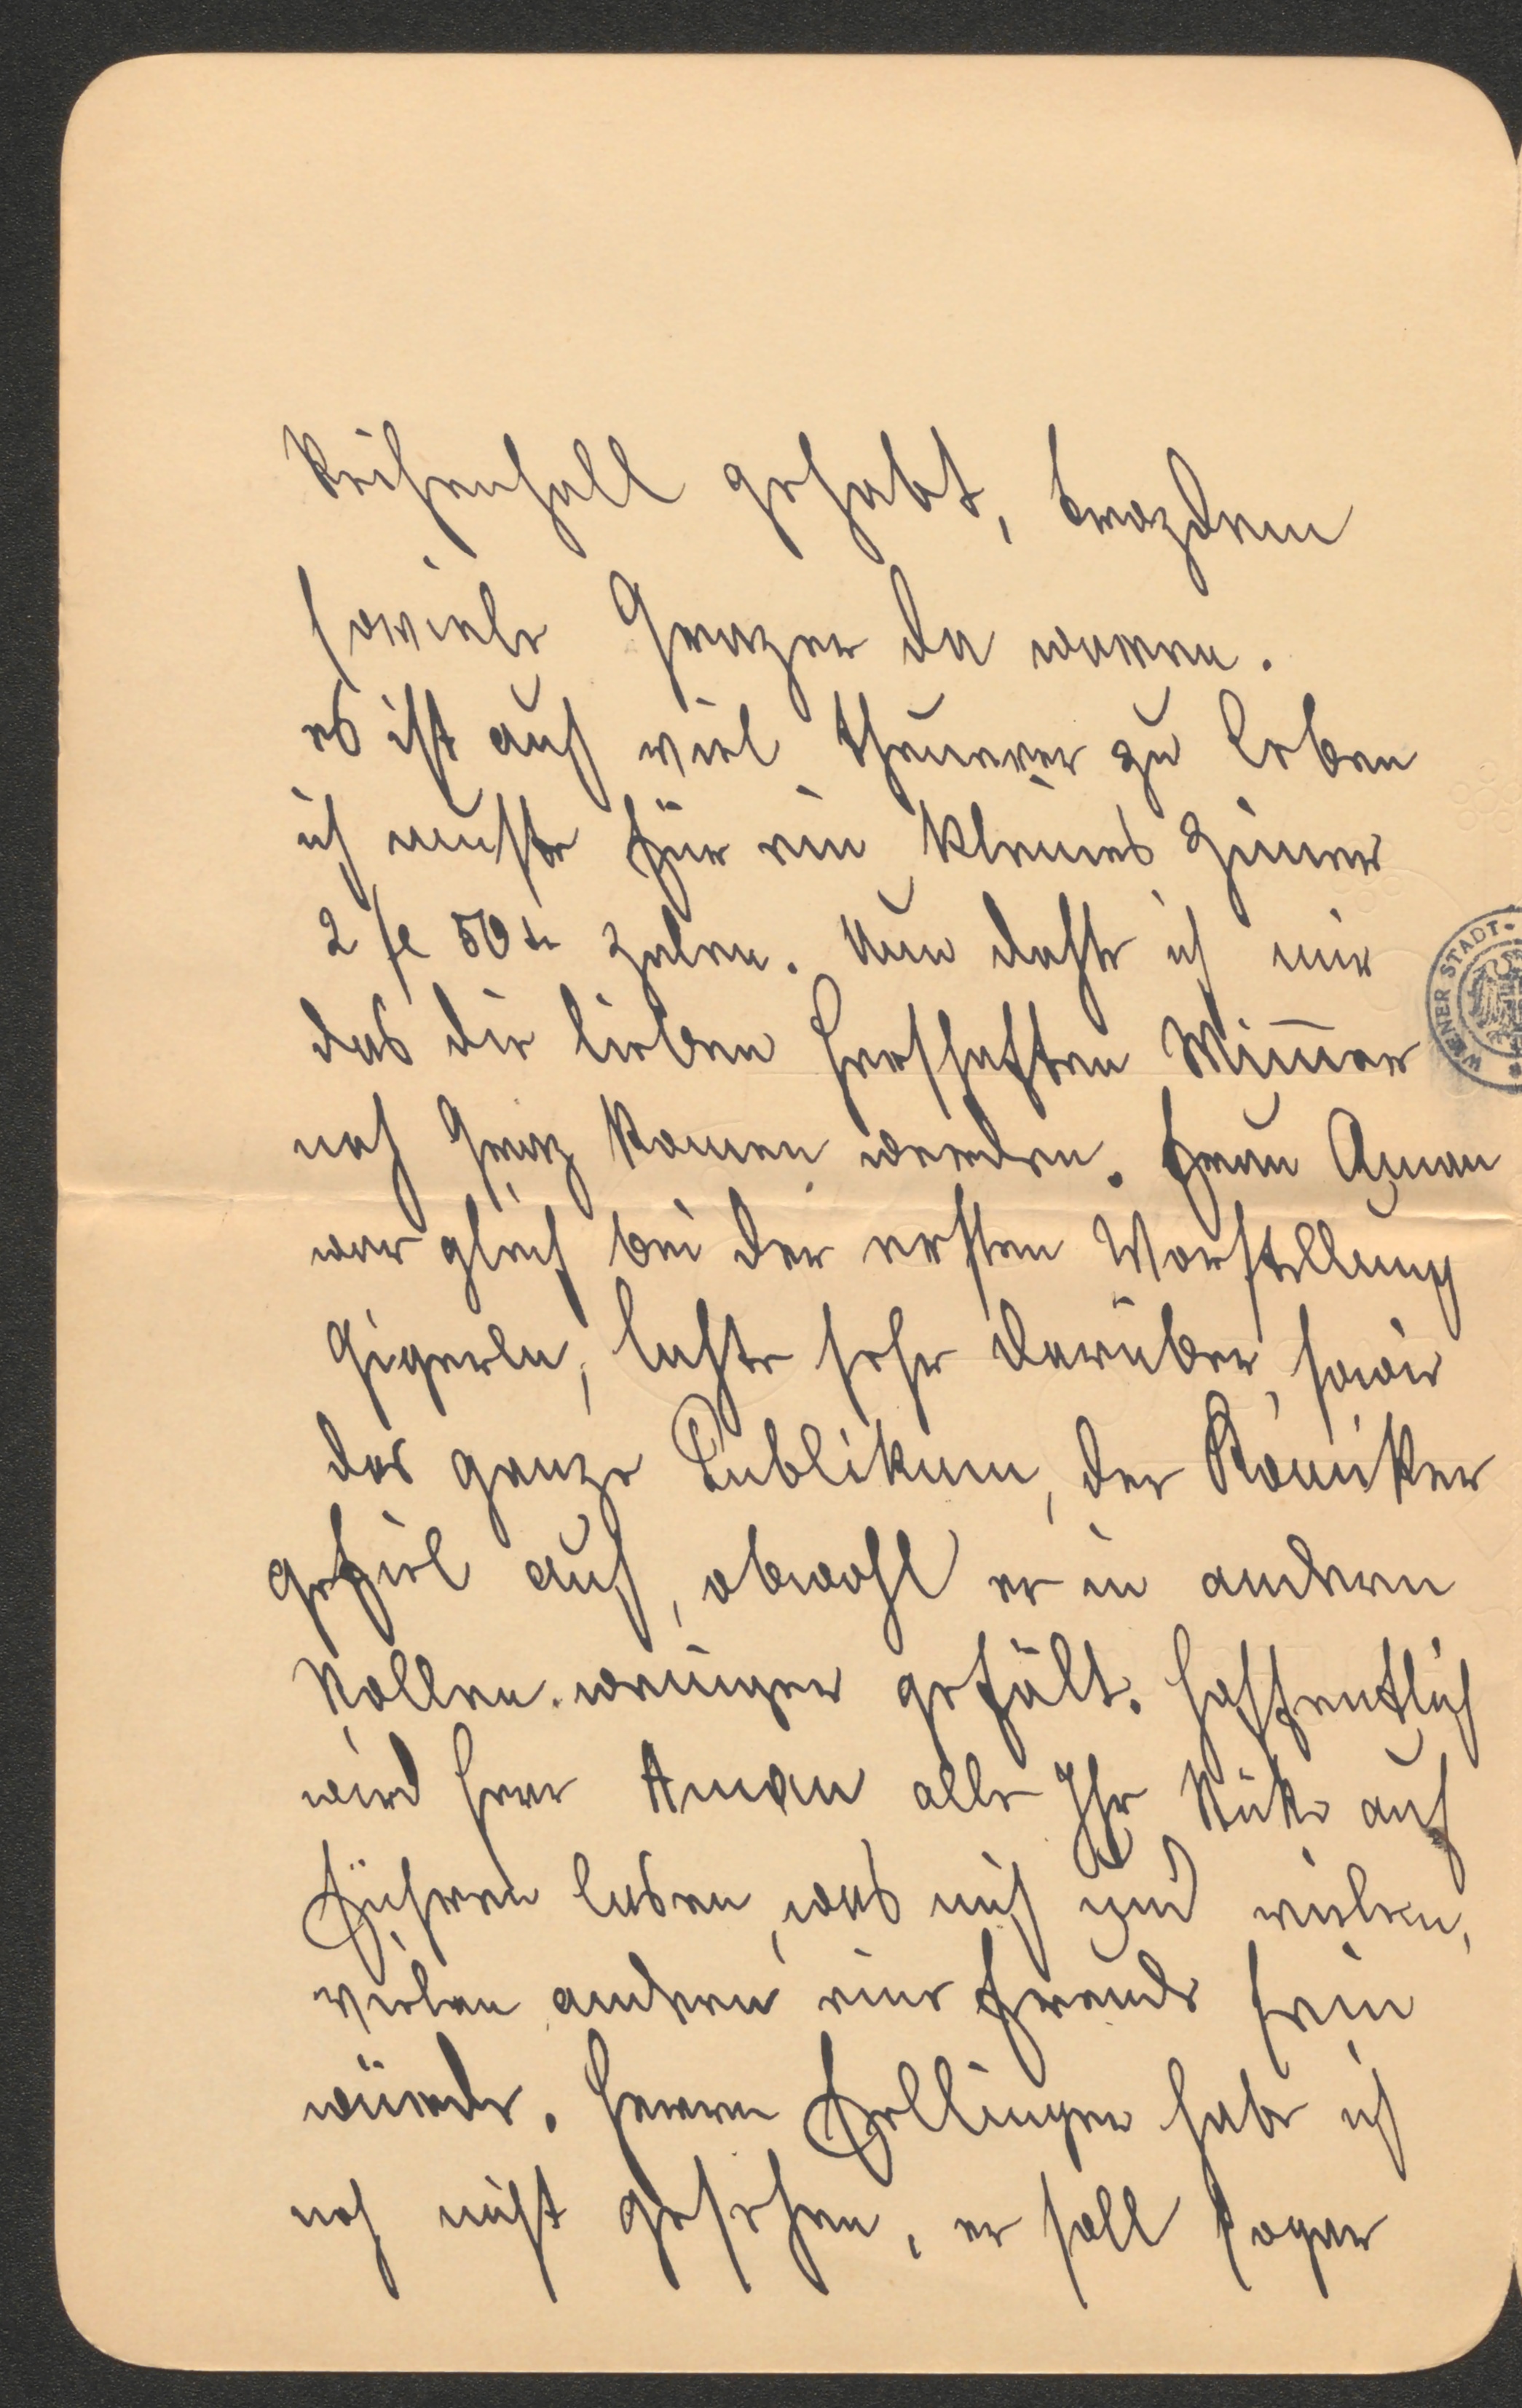 Reichenhall gehabt, trozdem
soviele Grazer da waren.
es ist auch viel theurer zu leben
ich muste für ein kleines Zimer
2 fl 50 kr zalen. Nun dachte ich mir
das die lieben Herschaften Wimer
nach Graz komen werden. Frau Aman
war gleich bei der ersten Vorstellung
Gigerln, lachte sehr darüber, sowie
das ganze Publikum, der Komiker
gefiel auch, obwohl er in andern
Rollen weniger gefält. Hoffentlich
wird Herr Aman alle Ihr Stüke auf
führen lasen, was mich und vielen,
vielen andern eine Freude sein
würde. Herrn Hellinger habe ich
noch nicht gesehen, er soll sogar
WIENER STADT-